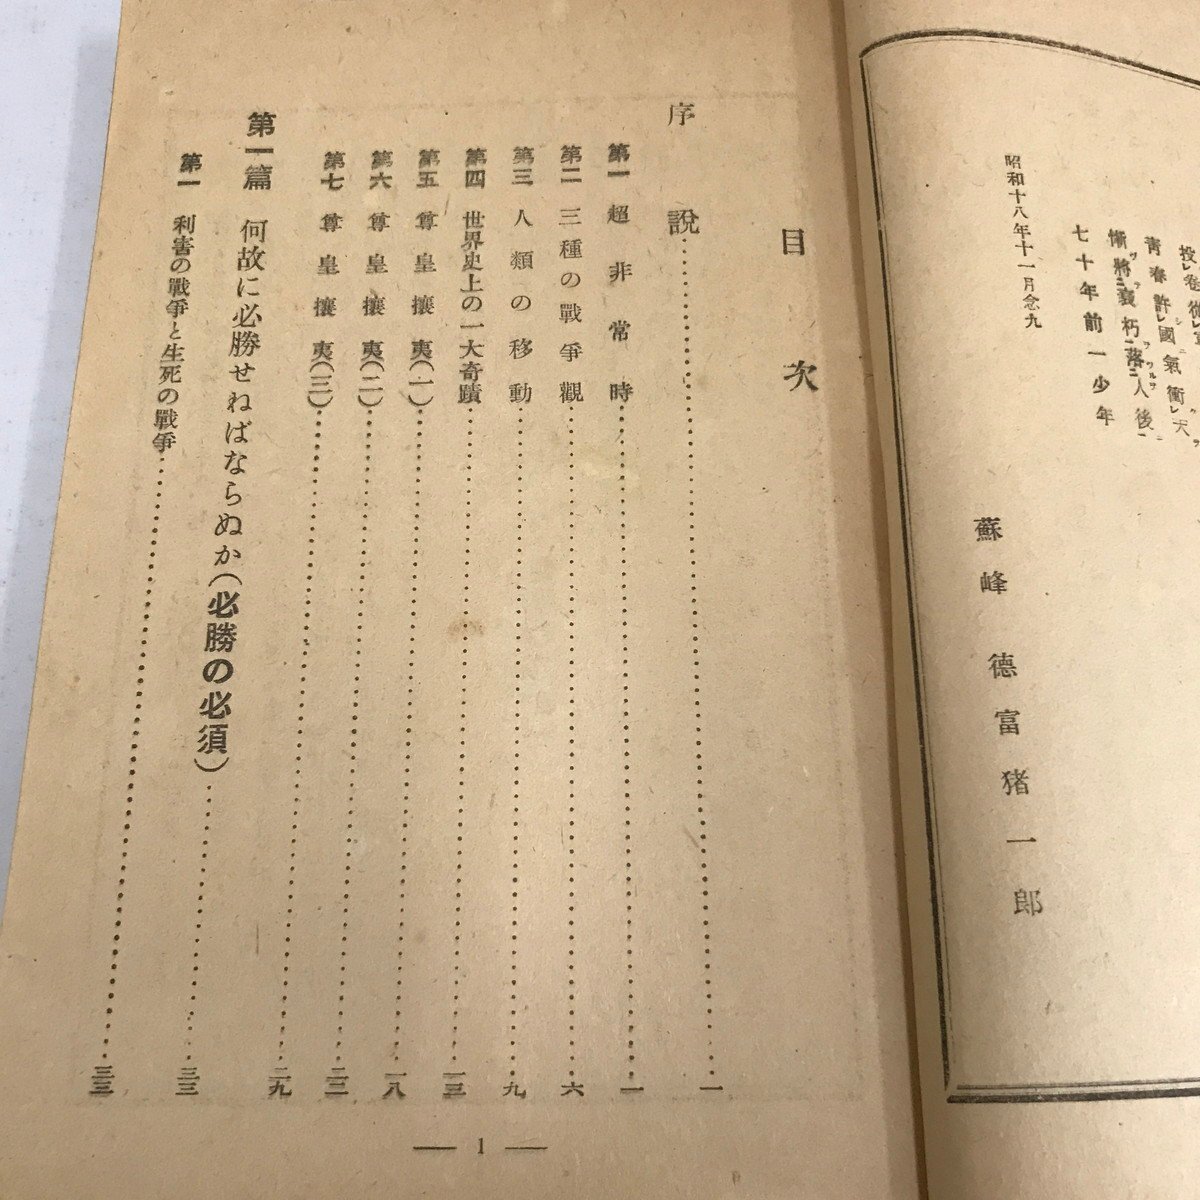 投レ卷
靑春許レ國氣衝レ天
慚將衰朽落人後
七十年前一少年
昭和十八年十一月念九
蘇峰 德富猪一郎
目次
序說……一
第一 超非常時……一
第二 三種の戰爭觀……六
第三 人類の移動……九
第四 世界史上の一大奇蹟……一三
第五 尊皇攘夷(一)……一八
第六 尊皇攘夷(二)……二三
第七 尊皇攘夷(三)……二九
第一篇 何故に必勝せねばならぬか(必勝の必須)……三三
第一 利害の戰爭と生死の戰爭……三三
— 1 —